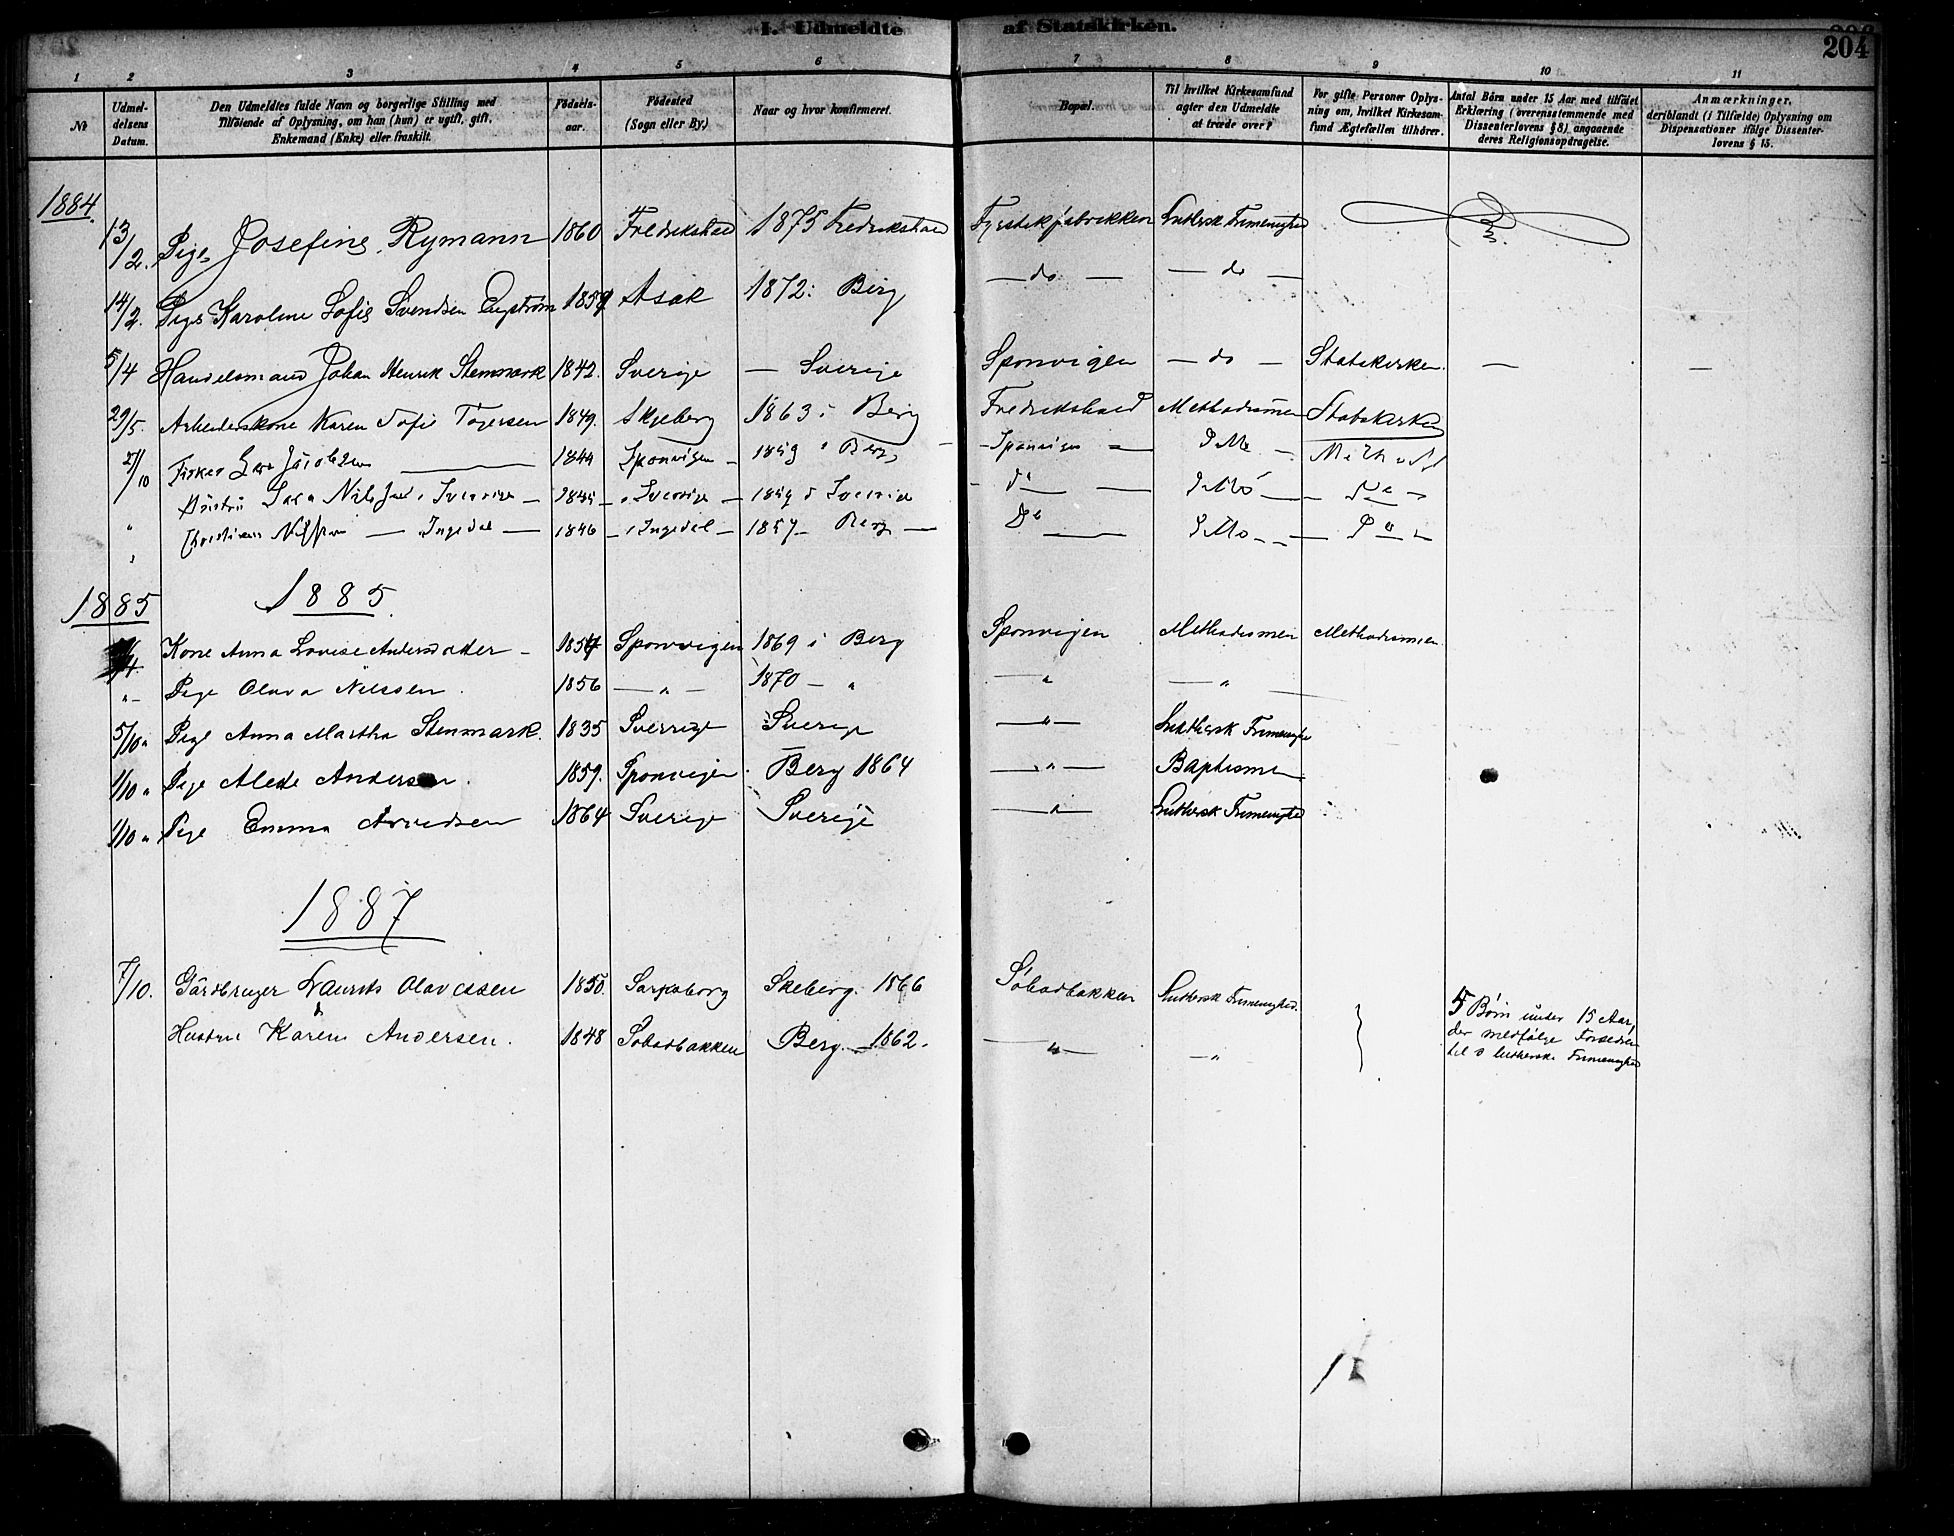 I. Udmeldte af Statskirken.
204
1 2 3 4 5 6 7 8 9 10 11
No
Udmel-
delsens
Datum.
Den Udmeldtes fulde Navn og borgerlige Stilling med
Tilføiende af Oplysning, om han (hun) er ugift, gift,
Enkemand (Enke) eller fraskilt.
Fødsels-
aar.
Fødested
(Sogn eller By.)
Naar og hvor konfirmeret.
Bopæl.
Til hvilket Kirkesamfund
agter den Udmeldte
at træde over?
For gifte Personer Oplys-
ning om, hvilket Kirkesam-
fund Ægtefællen tilhører.
Antal Børn under 15 Aar med tilføiet
Erklæring (overensstemmende med
Dissenterlovens § 8) angaaende
deres Religionsopdragelse.
Anmærkninger,
deriblandt (i Tilfælde) Oplysning om
Dispensationer ifølge Dissenter-
lovens § 15.
1884.
13/2. Pige Josefine Rymann 1860 Fredrikshald 1875 Fredrikshald Fyrstikfabrikken Luthersk Frimenighed
14/2. Pige Karoline Sofie Svendsen Engstrøm 1857 Asak 1872: Berg — do — — do —
5/4 Handelsmand Johan Henrik Stenmark 1842. Sverige — Sverige Sponvigen — do — Statskirken. — —
29/5. Arbeiderskone Karen Sofie Tøgersen 1849. Skjeberg 1863 i Berg Fredrikshald Methodismen Statskirken
/10 Fisker Jacobsen — 1844 Sponvigen — 1859 i Berg — Sponvigen — Method
" Hustru Nilsen i Sverige — 1845 — Sverige — 1859 i Sverige — Do — Do —
" Nilssen — Ingedal — 1846 — Ingedal — 1857 — Berg — Do — — Do —
1885 1885.
/4. Kone Anna Lovise Andersdatter — 1854 Sponvigen 1869 i Berg Sponvigen Methodismen Methodismen
"— Pige Olava Nilssen. 1856 — " — 1870 — " — " — — "
5/10 " Pige Anna Martha Stenmark. 1835 Sverrige Sverige — " — Luthersk Frimenighed
1/10 " Pige Alede Andersen. 1859. Sponvigen. Berg 1864 — " — Baptismen
1/10 " Pige Emma Arvedsen 1864 Sverige Sverige — " — Luthersk Frimenighed
1887
7/10. Gårdbruger Laurits Olavessen 1850. Sarpsborg Skeberg. 1866 Sobadbakken Luthersk Frimenighed.
&
Hustru Karen Andersen. 1848 Sobadbakken Berg. — 1862. — " — — " —
5 Børn under 15 Aar,
der medfølge Forældrene
til d lutherske Frimenighed